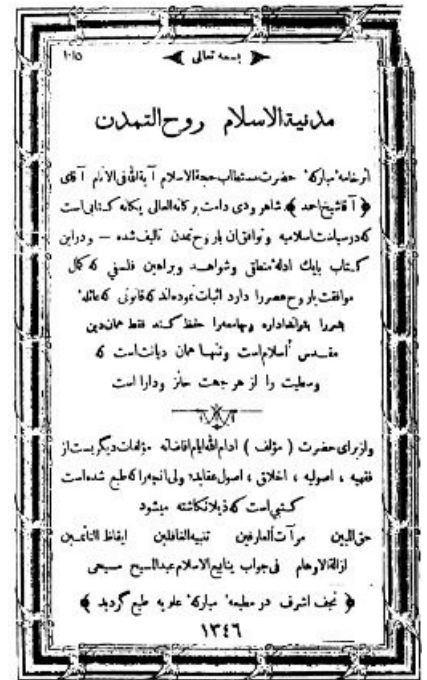 ١٠١٥
بسمه تعالی
مدنیةالاسلام روح‌التمدن
از خامه مبارکه حضرت مستطاب حجةالاسلام آیةالله فی‌الانام آقای
﴿ آقا شیخ احمد ﴾ شاهرودی دامت برکاته‌العالی یگانه کتابی است
که در سیاست اسلامیه و توافق ان با روح تمدن تالیف شده — و دراین
کتاب بایك ادله منطقی وشواهد وبراهین فلسفی که کمال
موافقت با روح عصر را دارد اثبات نموده‌اند که قانونی که عائله
بشررا بتواند اداره وجامعه‌را حفظ کند فقط همان دین
مقدس اسلام است وتنها همان دیانت است که
وسطیت را از هر جهت حائز ودارا است
واز برای حضرت ( مؤلف ) ادام‌الله ایام افاضاته مؤلفات دیگریست از
فقهیه ، اصولیه ، اخلاق ، اصول عقاید؛ ولی انچه‌را که طبع شده است
کتبی است که ذیلا نگاشته میشود
حق‌المبین مرآت‌العارفین تنبیه‌الغافلین ایقاظ النائمین
ازالةالاوهام فی جواب ینابیع‌الاسلام عبدالمسیح مسیحی
﴿ نجف اشرف در مطبعه مبارکه علویه طبع گردید ﴾
١٣٤٦